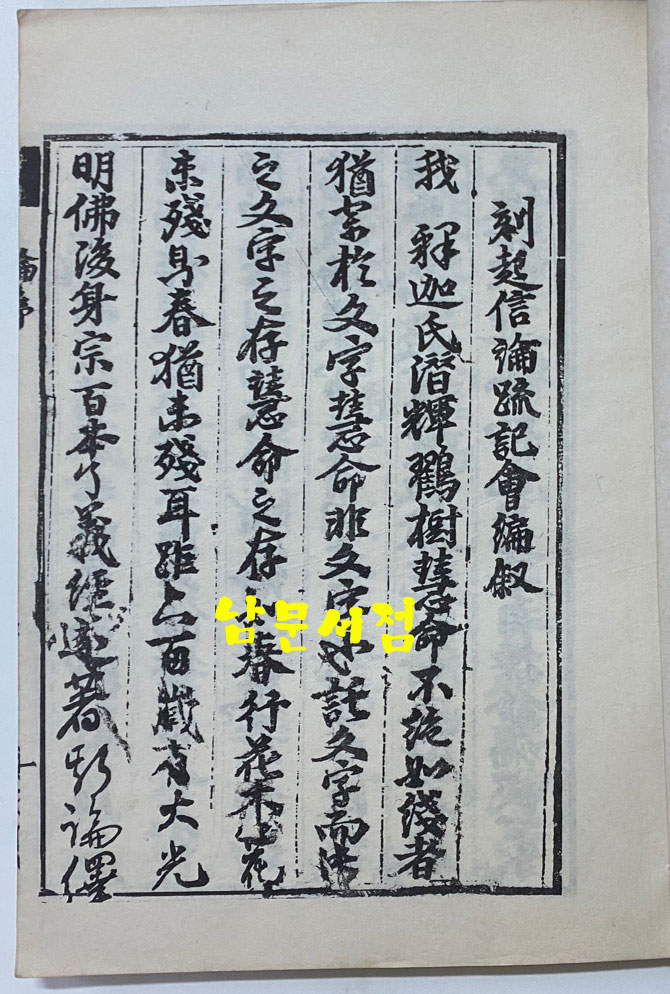 刻起信論疏記會編敘
我 釋迦氏潛輝鶴樹慧命不絕如綫者
猶寄於文字慧命非文字也託文字而
之文字之存慧命之存 春行花木 花
未殘則春猶未殘耳距六百歲有大光
明佛後身宗百本了義經遂著斯論繹
論序
남문서점